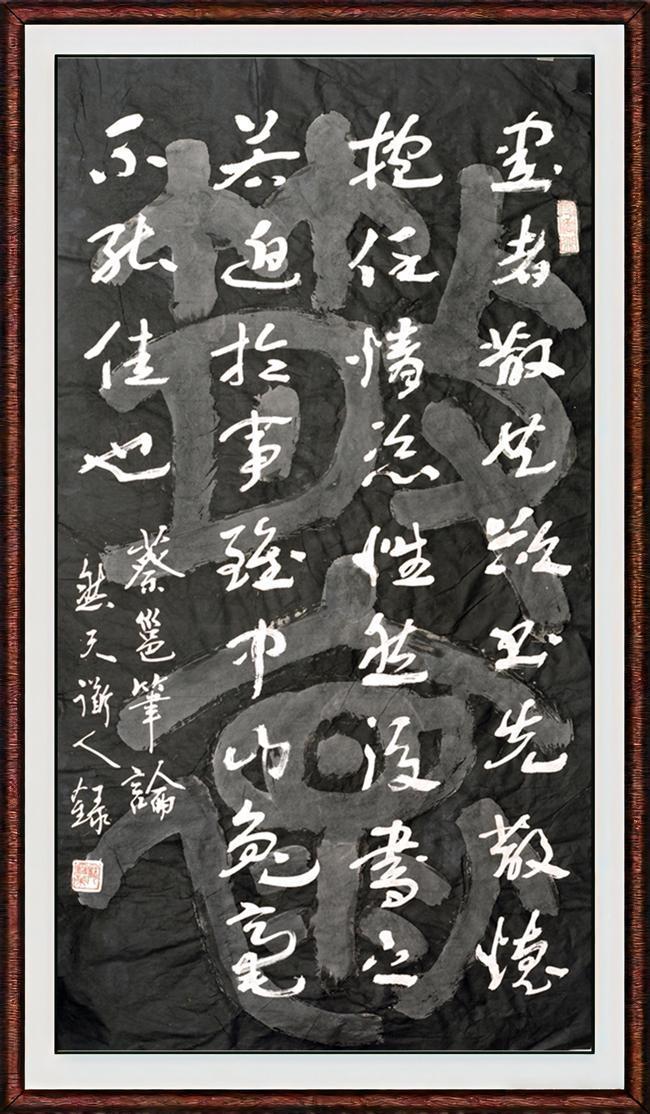 書者散也欲书先散懷
抱任情恣性然後書之
若迫於事雖中山兔毫
不能佳也
蔡邕筆論
然天人録